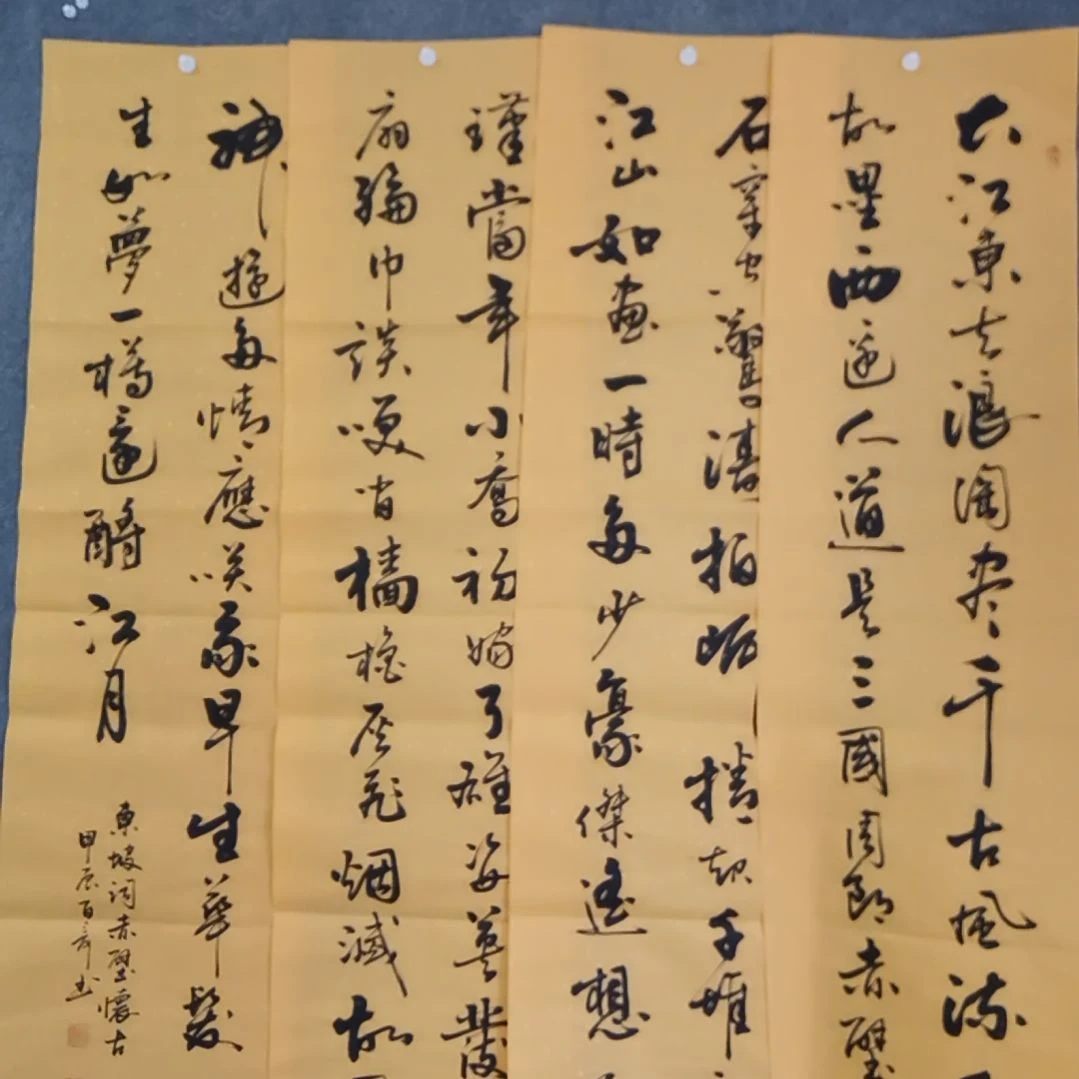 大江東去浪淘盡千古風流
故壘西邊人道是三國周郎赤壁
石穿空驚濤拍岸捲起千堆
江山如畫一時多少豪傑遙想
瑾當年小喬初嫁了雄姿英發
扇綸巾談咲間檣櫓灰飛烟滅故
神遊多情應咲我早生華髮
生如夢一樽還酹江月
東坡詞赤壁懷古
甲辰百書